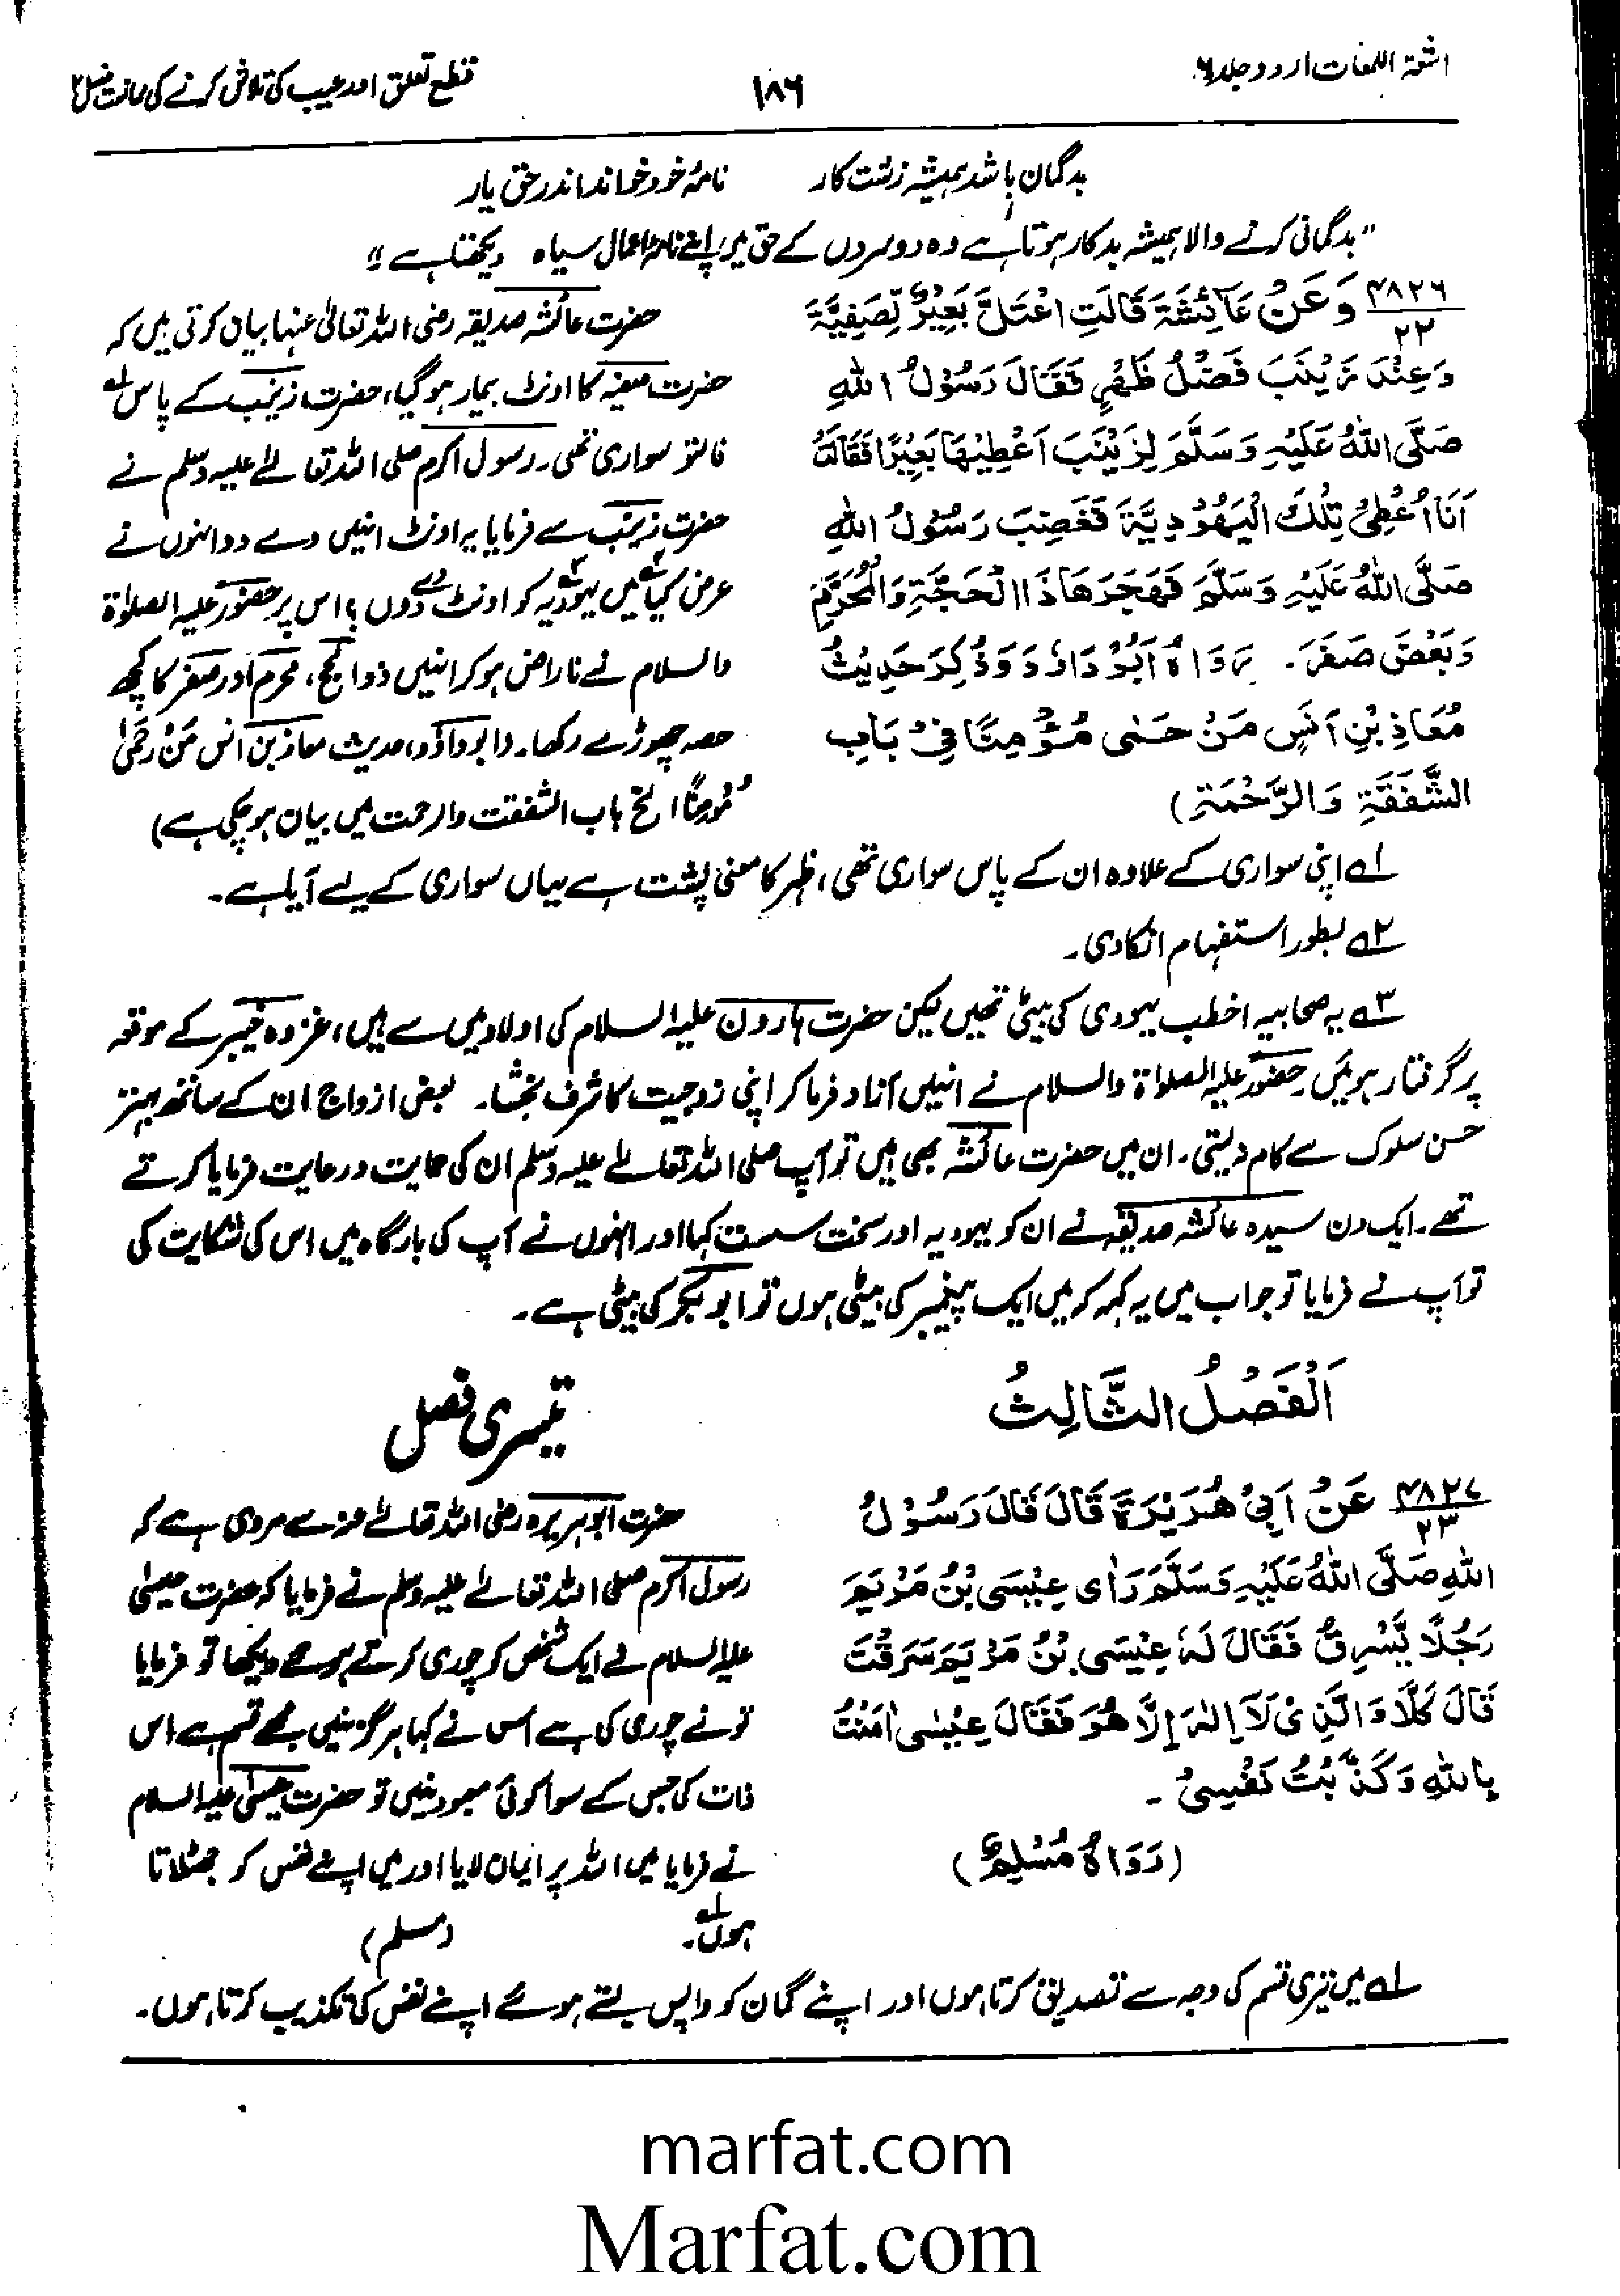 اشعۃ اللمعات اردو جلد ۶
۱۸۶
قطع تعلق اور عیب کی تلاش کرنے کی ممانعت فصل ۲
بدگمان باشد ہمیشہ زشت کار نامۂ خود خواند اندر حق یار
"بدگمانی کرنے والا ہمیشہ بدکار ہوتا ہے وہ دوسروں کے حق میں اپنے نامۂ اعمال سیاہ دیکھتا ہے"
۴۸۲۶
۲۲
وَعَنْ عَائِشَةَ قَالَتِ اعْتَلَّ بَعِيْرٌ لِّصَفِيَّةَ
وَعِنْدَ زَيْنَبَ فَضْلُ ظَهْرٍ فَقَالَ رَسُوْلُ اللهِ
صَلَّى اللهُ عَلَيْهِ وَسَلَّمَ لِزَيْنَبَ اَعْطِيْهَا بَعِيْرًا فَقَالَتْ
اَنَا اُعْطِيْ تِلْكَ الْيَهُوْدِيَّةَ فَغَضِبَ رَسُوْلُ اللهِ
صَلَّى اللهُ عَلَيْهِ وَسَلَّمَ فَهَجَرَهَا ذَا الْحَجَّةِ وَالْمُحَرَّمَ
وَبَعْضَ صَفَرَ۔ رَوَاهُ اَبُوْ دَاوٗدَ وَذُكِرَ حَدِيْثُ
مُعَاذِ بْنِ اَنَسٍ مَنْ حَمٰى مُؤْمِنًا فِيْ بَابِ
الشَّفَقَةِ وَالرَّحْمَةِ)
حضرت عائشہ صدیقہ رضی اللہ تعالیٰ عنہا بیان کرتی ہیں کہ
حضرت صفیہ کا اونٹ بیمار ہو گیا، حضرت زینب کے پاس۱ے
فالتو سواری تھی۔ رسول اکرم صلی اللہ تعالےٰ علیہ وسلم نے
حضرت زینب سے فرمایا یہ اونٹ انہیں دے دو انہوں نے
عرض کیا۲ے میں یہودیہ۳ے کو اونٹ دے دوں؟ اس پر حضور علیہ الصلوٰۃ
والسلام نے ناراض ہو کر انہیں ذوالحج، محرم اور صفر کا کچھ
حصہ چھوڑے رکھا۔ (ابوداؤد، حدیث معاذ بن انس مَنْ رَحَمٰی
مُؤْمِنًا الخ باب الشفقت والرحمت میں بیان ہو چکی ہے)
۱ے اپنی سواری کے علاوہ ان کے پاس سواری تھی، ظہر کا معنی پشت ہے یہاں سواری کے لیے آیا ہے۔
۲ے بطور استفہام انکاری۔
۳ے یہ صحابیہ اخطب یہودی کی بیٹی تھیں لیکن حضرت ہارون علیہ السلام کی اولاد میں سے ہیں، غزوہ خیبر کے موقعہ
پر گرفتار ہوئیں۔ حضور علیہ الصلوٰۃ والسلام نے انہیں آزاد فرما کر اپنی زوجیت کا شرف بخشا۔ بعض ازواج ان کے ساتھ بہتر
حسن سلوک سے کام نہ لیتی۔ ان میں حضرت عائشہ بھی ہیں تو آپ صلی اللہ تعالےٰ علیہ وسلم ان کی حمایت و رعایت فرمایا کرتے
تھے۔ ایک دن سیدہ عائشہ صدیقہ نے ان کو یہودیہ اور سخت سست کہا اور انہوں نے آپ کی بارگاہ میں اس کی شکایت کی
تو آپ نے فرمایا تو جواب میں یہ کہہ کہ میں ایک پیغمبر کی بیٹی ہوں تو ابوبکر کی بیٹی ہے۔
اَلْفَصْلُ الثَّالِثُ
تیسری فصل
۴۸۲۷
۲۳
عَنْ اَبِيْ هُرَيْرَةَ قَالَ قَالَ رَسُوْلُ
اللهِ صَلَّى اللهُ عَلَيْهِ وَسَلَّمَ رَاٰى عِيْسَى بْنُ مَرْيَمَ
رَجُلًا يَّسْرِقُ فَقَالَ لَهٗ عِيْسَى بْنُ مَرْيَمَ سَرَقْتَ
قَالَ كَلَّا وَالَّذِيْ لَا اِلٰهَ اِلَّا هُوَ فَقَالَ عِيْسٰى اٰمَنْتُ
بِاللهِ وَكَذَّبْتُ نَفْسِيْ۔
(رَوَاهُ مُسْلِمٌ)
حضرت ابوہریرہ رضی اللہ تعالےٰ عنہ سے مروی ہے کہ
رسول اکرم صلی اللہ تعالےٰ علیہ وسلم نے فرمایا کہ حضرت عیسیٰ
علیہ السلام نے ایک شخص کو چوری کرتے ہوئے دیکھا تو فرمایا
تو نے چوری کی ہے اس نے کہا ہرگز نہیں مجھے قسم ہے اس
ذات کی جس کے سوا کوئی معبود نہیں تو حضرت عیسیٰ علیہ السلام
نے فرمایا میں اللہ پر ایمان لایا اور میں اپنے نفس کو جھٹلاتا
ہوں۱ے۔ (مسلم)
۱ے میں تیری قسم کی وجہ سے تصدیق کرتا ہوں اور اپنے گمان کو واپس لیتے ہوئے اپنے نفس کی تکذیب کرتا ہوں۔
marfat.com
Marfat.com